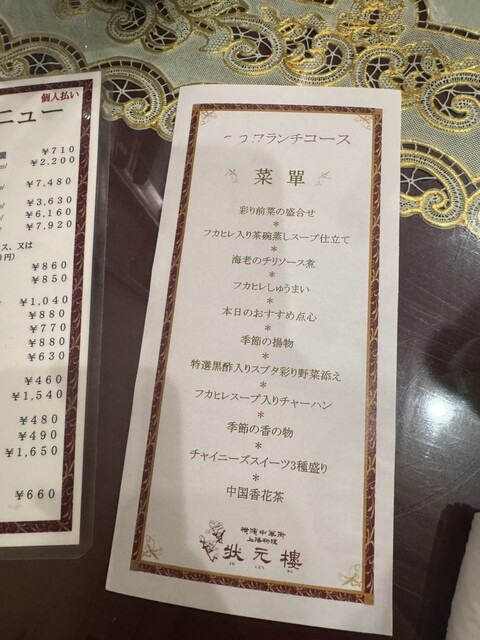 個人払い
ニュー
¥710
¥2,200
¥7,480
¥3,630
¥6,160
¥7,920
ス、又は
円）
¥860
¥850
¥1,040
¥880
¥770
¥880
¥630
¥460
¥1,540
¥480
¥490
¥1,650
¥660
ランチコース
菜 單
彩り前菜の盛合せ
*
フカヒレ入り茶碗蒸しスープ仕立て
*
海老のチリソース煮
*
フカヒレしゅうまい
*
本日のおすすめ点心
*
季節の揚物
*
特選黒酢入りスブタ彩り野菜添え
*
フカヒレスープ入りチャーハン
*
季節の香の物
*
チャイニーズスイーツ3種盛り
*
中国香花茶
横濱中華街
上海料理
状元樓